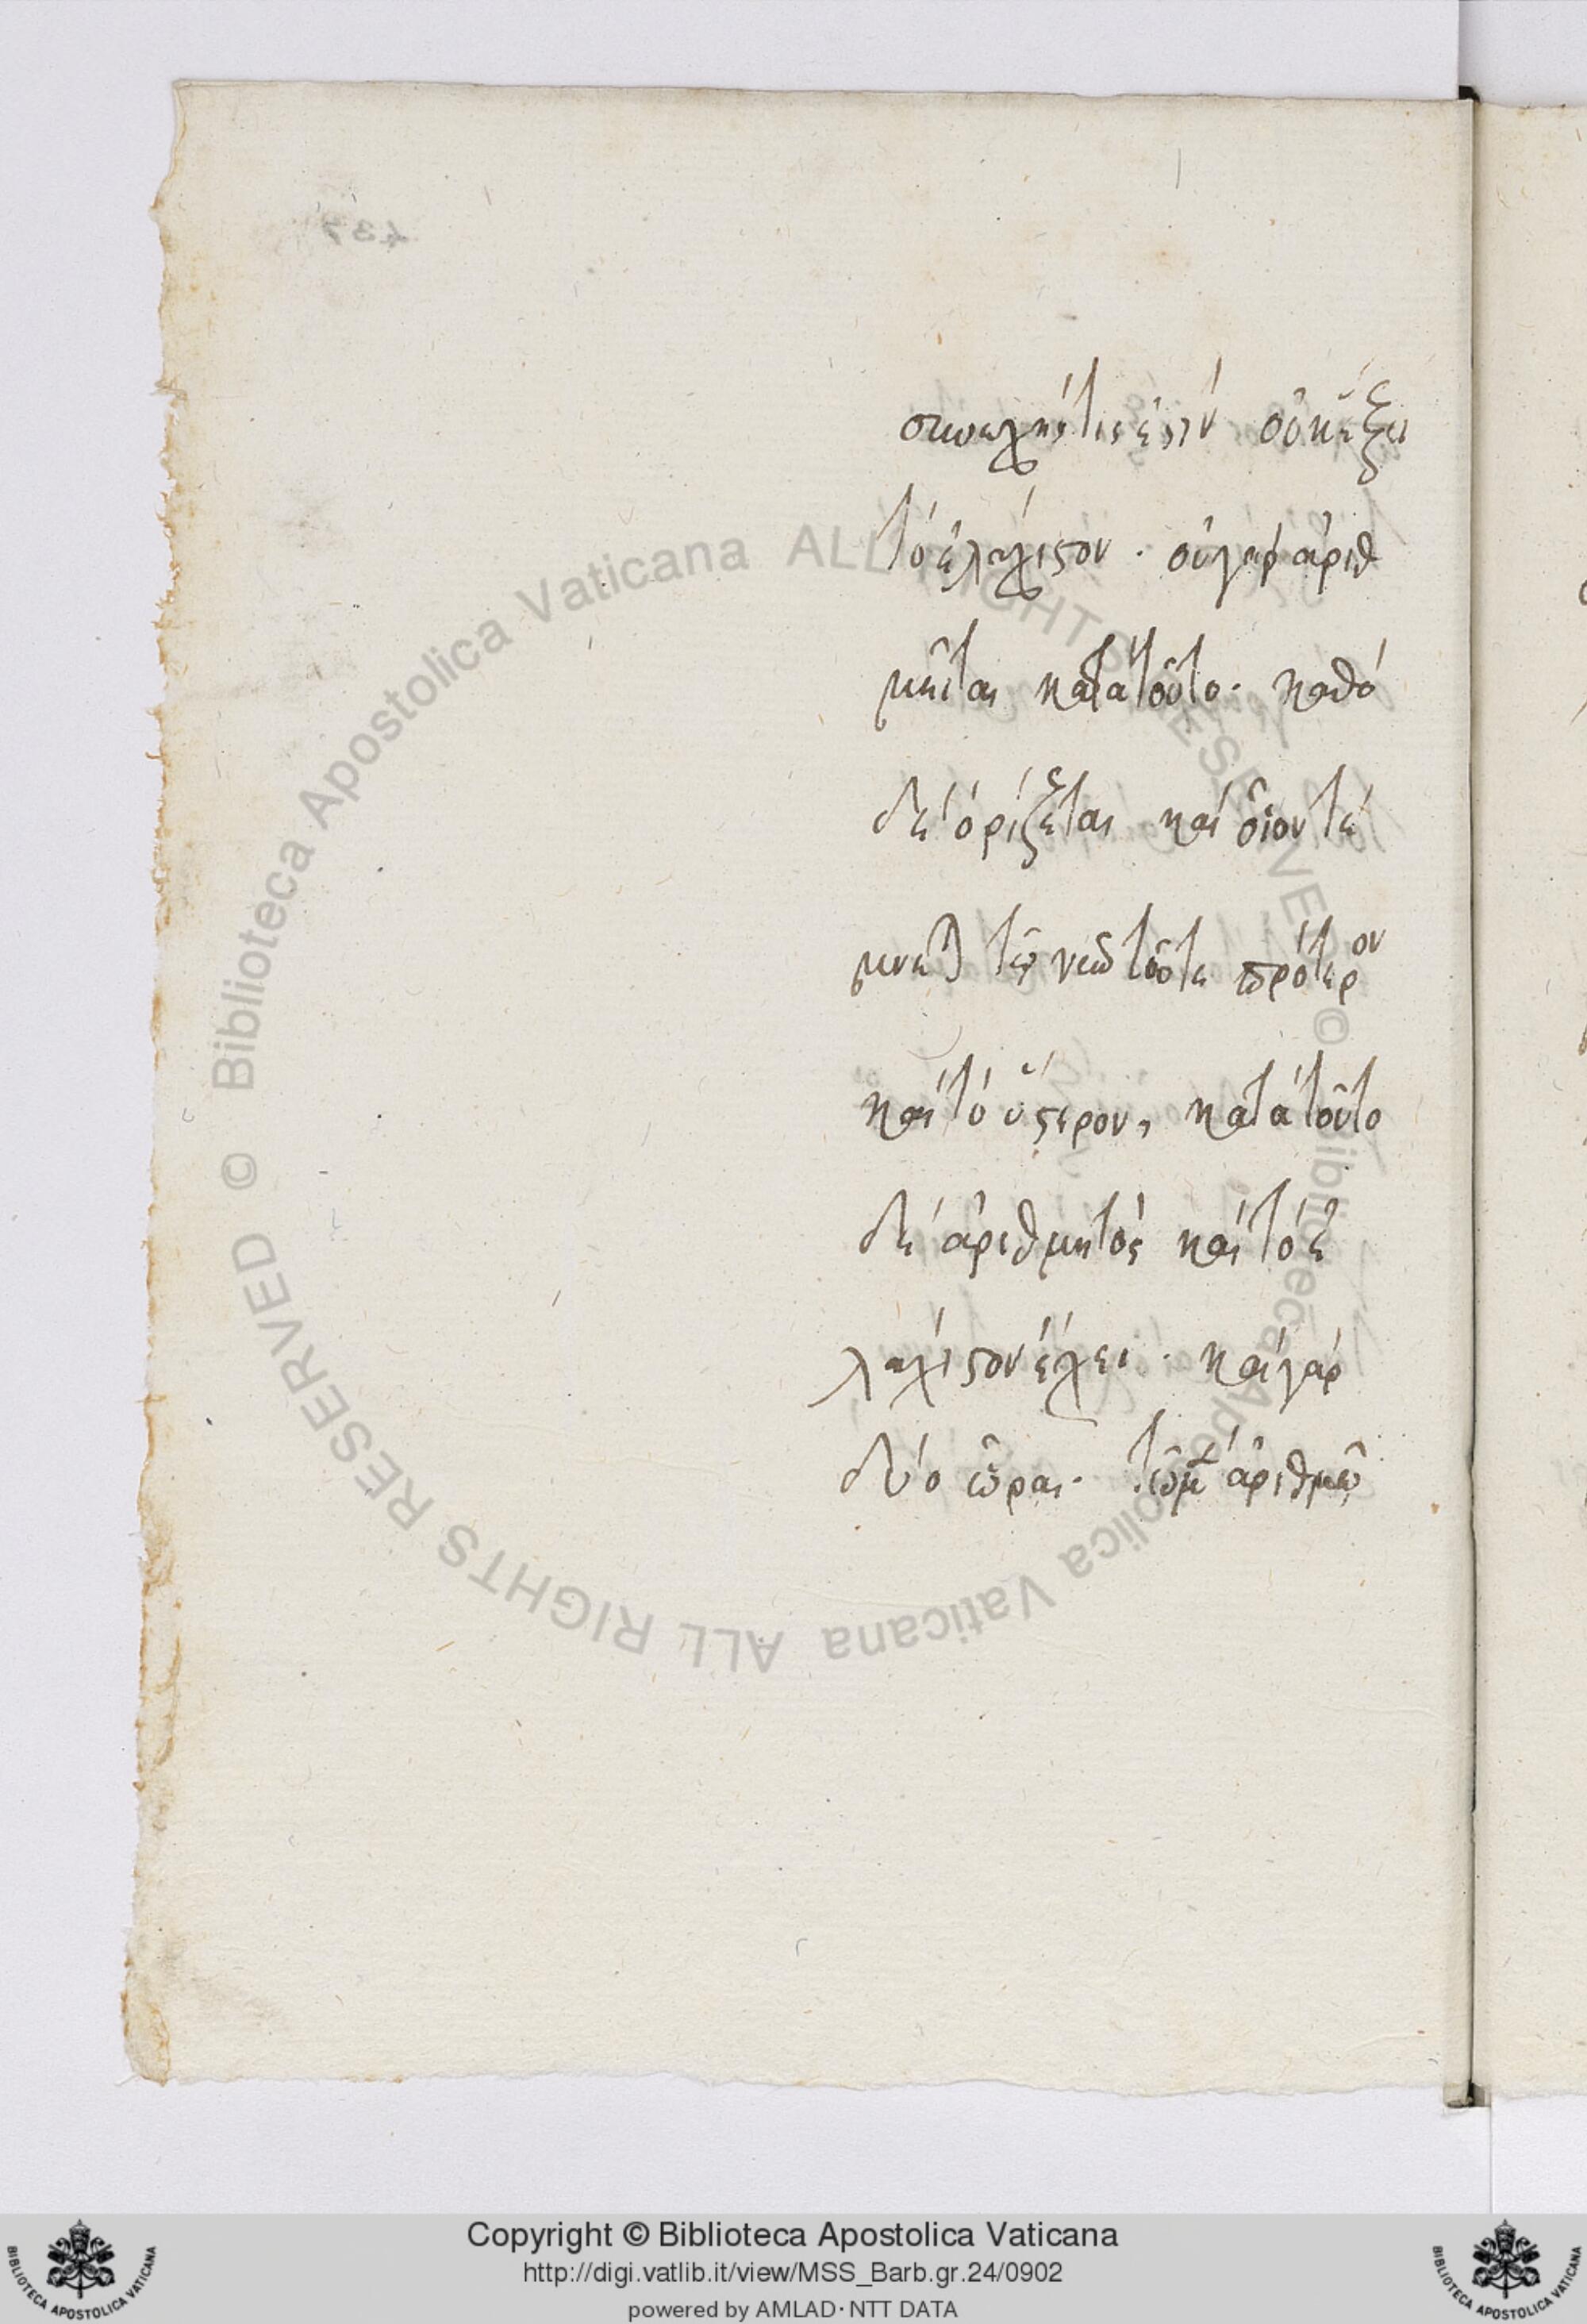 συνεχής τις ἐστὶν οὐχ ἕξει
τὸ ἐλάχιστον · οὐ γὰρ ἀριθ
μεῖται κατὰ τοῦτο · καθὸ
δὲ ὁρίζεται καὶ οἷον τέ
μνεται τῷ νῦν τό τε πρότερον
καὶ τὸ ὕστερον, κατὰ τοῦτο
δὲ ἀριθμητὸς καὶ τὸ ἐ
λάχιστον ἔχει · καὶ γὰρ
δύο ὧραι · τῷ μὲν ἀριθμῷ
437
© Biblioteca Apostolica Vaticana ALL RIGHTS RESERVED © Biblioteca Apostolica Vaticana ALL RIGHTS RESERVED
BIBLIOTECA APOSTOLICA VATICANA
Copyright © Biblioteca Apostolica Vaticana
http://digi.vatlib.it/view/MSS_Barb.gr.24/0902
powered by AMLAD · NTT DATA
BIBLIOTECA APOSTOLICA VATICANA